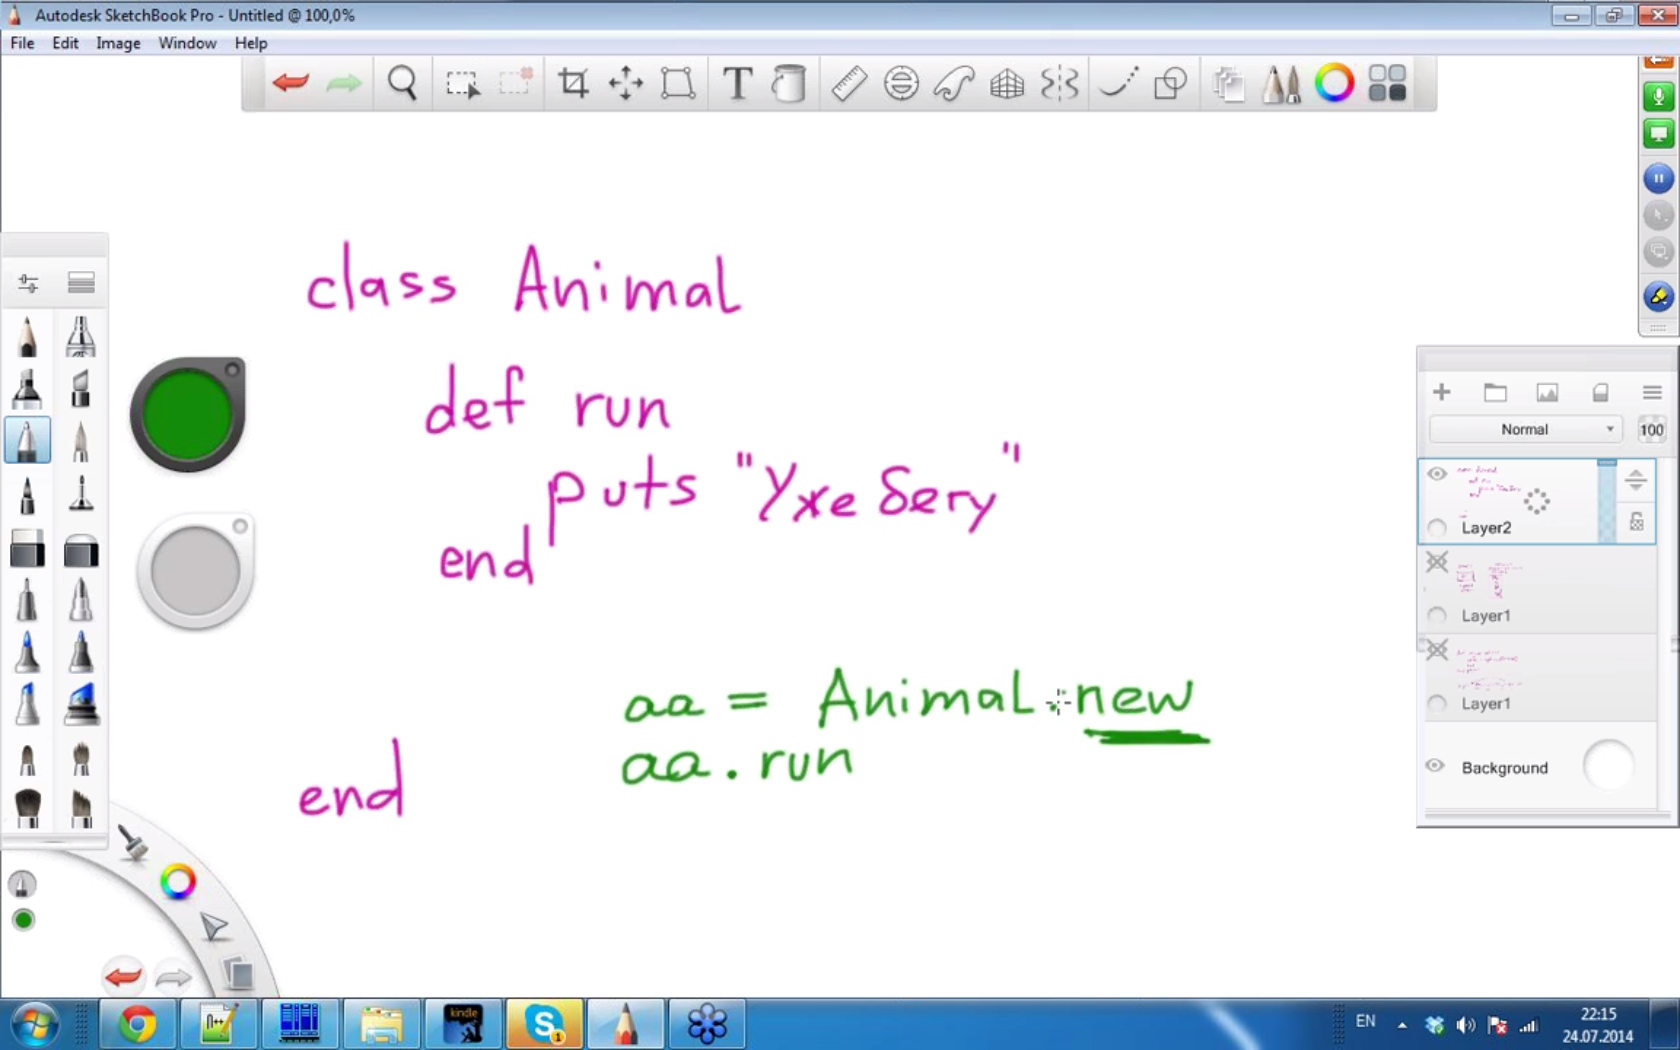 Autodesk SketchBook Pro - Untitled @ 100,0%
File Edit Image Window Help
T
class Animal
def run
puts "Уже бегу"
end
aa = Animal.new
aa.run
end
Normal 100
Layer2
Layer1
Layer1
Background
n++
kindle
S 1
EN
22:15
24.07.2014